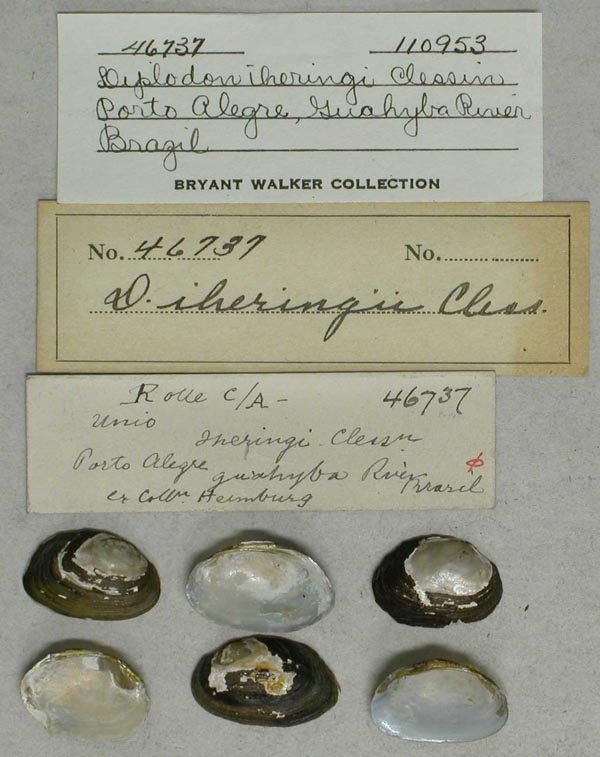 46737 110953
Diplodon iheringi Clessin
Porto Alegre, Guahyba River
Brazil
BRYANT WALKER COLLECTION
No. 46737 No.
D. iheringii Cless.
Rolle c/A - 46737
Unio
Iheringi Clessn
Porto Alegre
guahyba River
Brazil
ex Colln Heimburg